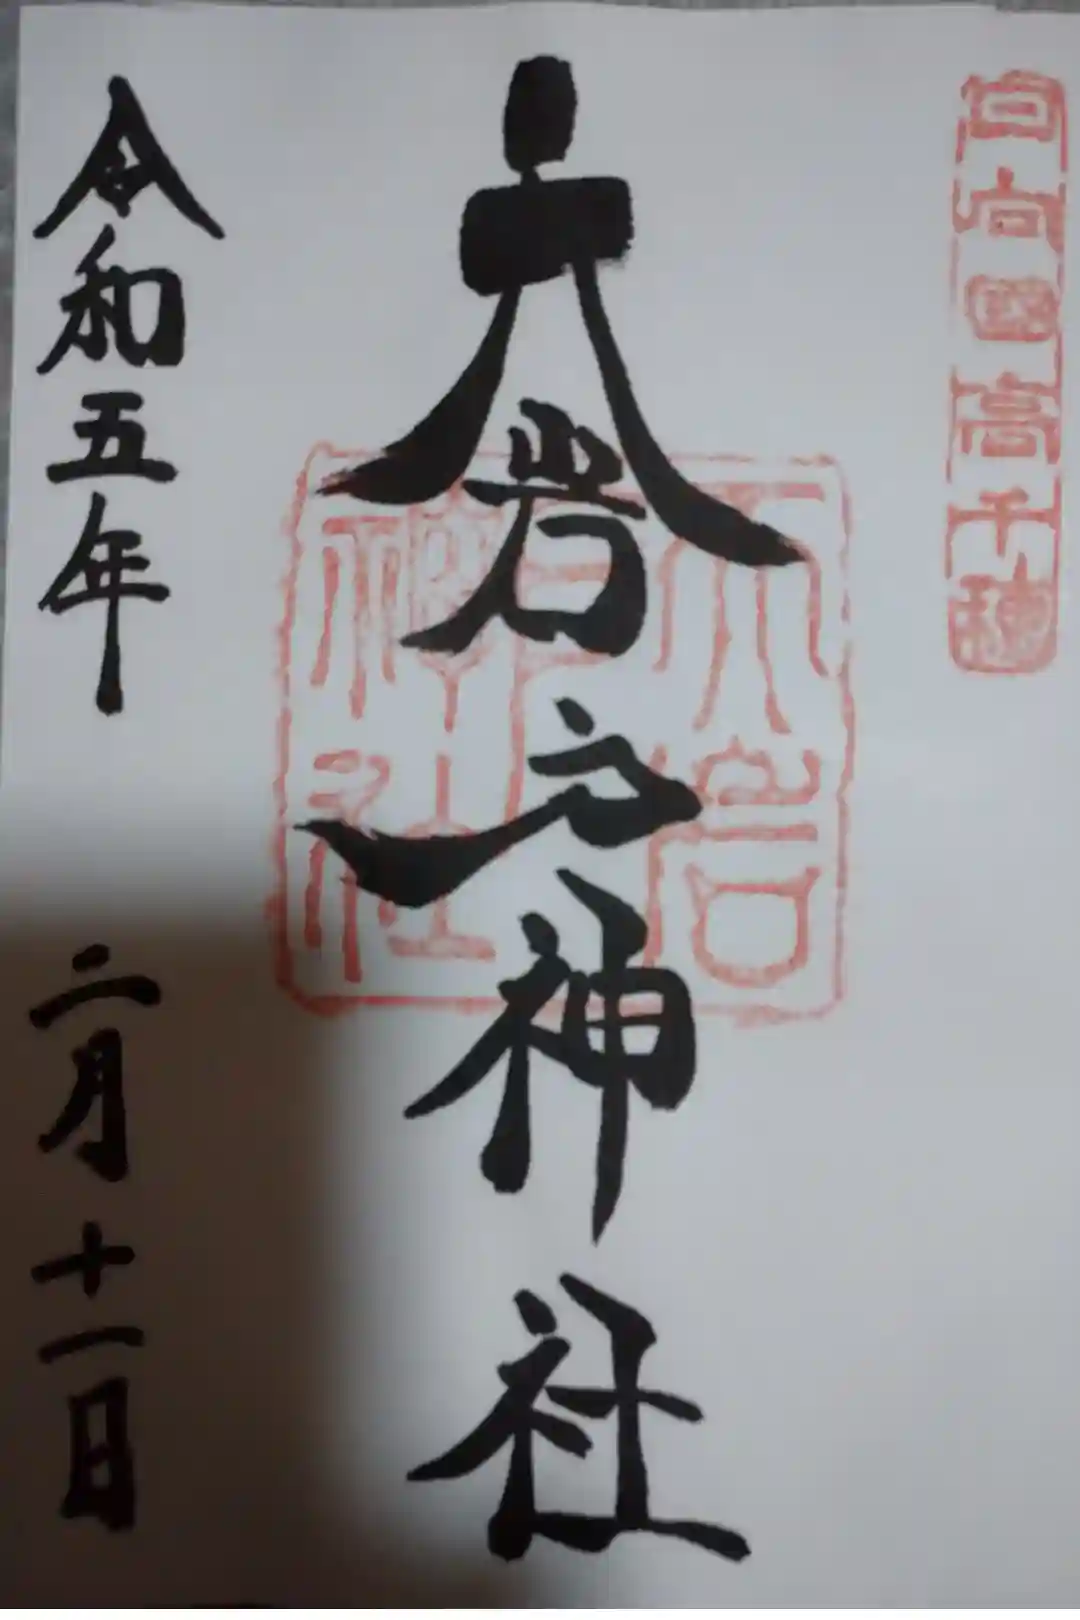 日向國高千穂
天岩戸神社
天岩戸神社
令和五年 二月十一日